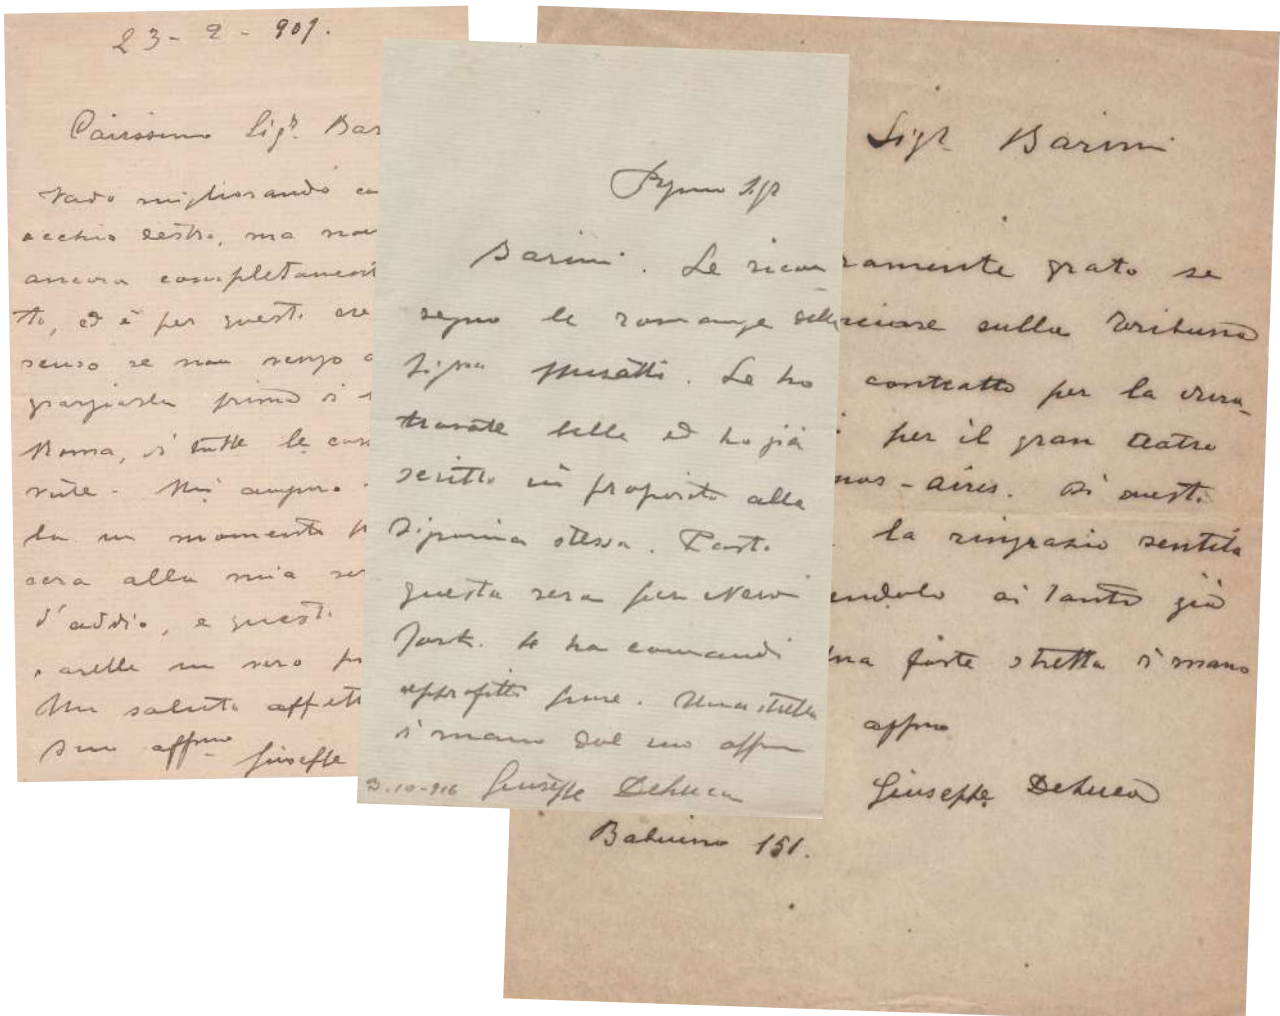 23 - 2 - 907.
Carissimo Sigr. Bar
Vado migliorando co
occhio destro, ma non
ancora completament
to, ed è per questo che
scuso se non vengo a
graziarla prima di
Roma, di tutte le cose
vute. Mi auguro
la un momento
sera alla mia ser
d'addio, e questo
sarebbe un vero
Mi saluta affett
suo affmo Giuseppe
Sigr
Barini. Le ricon
segno le romanze della
Sigra Musatti. Le ho
trovate belle ed ho già
scritto in proposito alla
Signorina stessa. Parto
questa sera per New
York. Se ha comandi
approfitti pure. Una stretta
di mano dal suo affmo
Giuseppe DeLuca
3-10-916
Sigr Barini
ramente grato se
nciare sulla Tribuna
contratto per la
per il gran teatro
nos-aires. Di questo
la ringrazio sentita
endolo di tanto già
Una forte stretta di mano
affmo
Giuseppe DeLuca
Babuino 151.